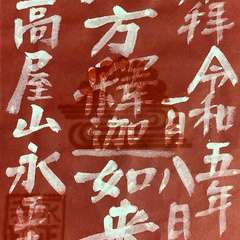 拝 令和五年
一月八日
方釋迦如来
高屋山永平